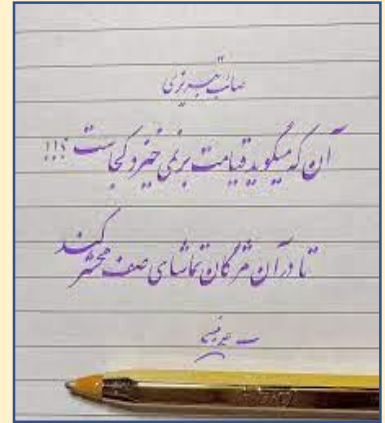 صائب تبریزی
آن که میگوید قیامت برنمی خیزد کجاست ؟!!!
تا در آن مژگان تماشای صف محشر کند